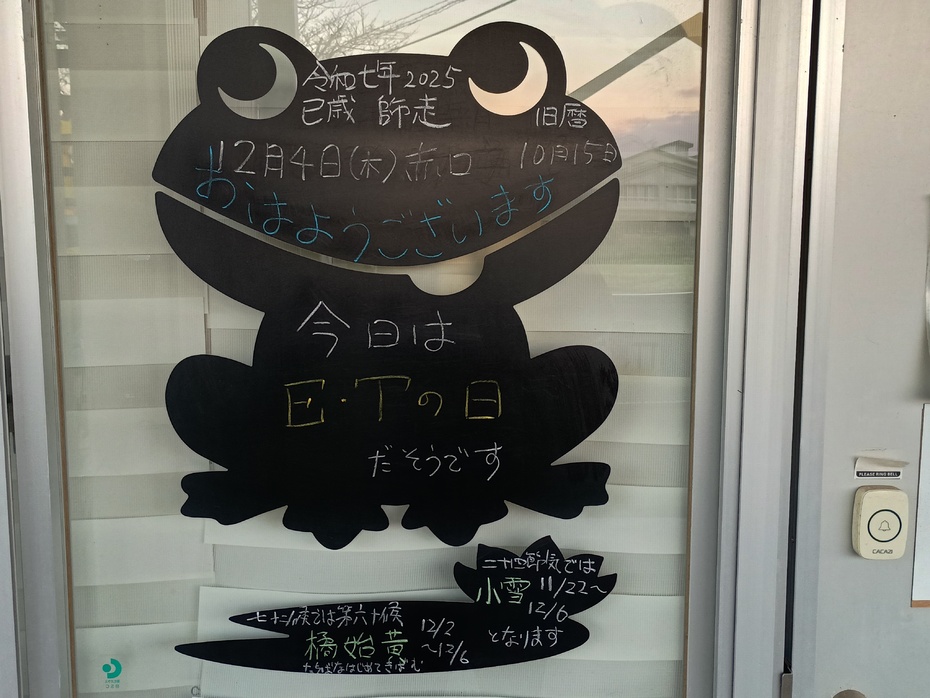 令和七年 2025
巳歳 師走
旧暦
12月4日(木) 赤口 10月15日
おはようございます
今日は
E・Tの日
だそうです
二十四節気では
小雪 11/22〜
12/6
となります
七十二候では第六十候
橘始黄
12/2
〜12/6
たちばなはじめてきばむ
PLEASE RING BELL
CACAZI